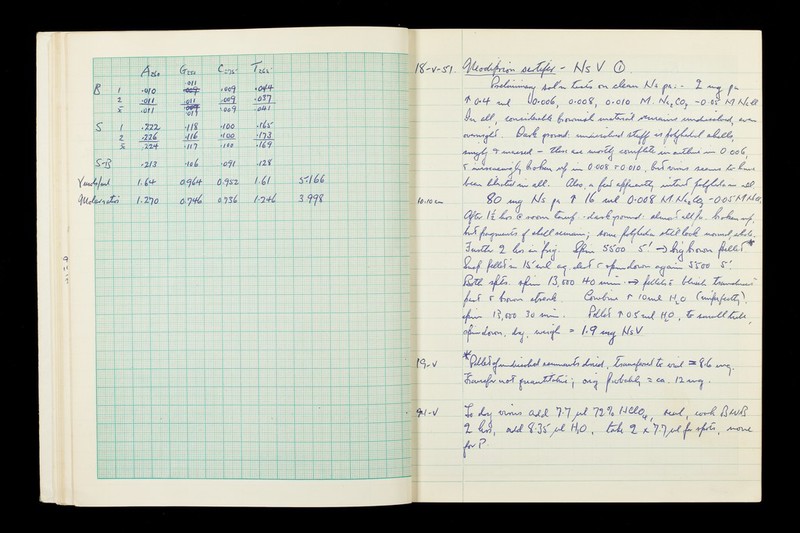 A260 G250 C275 T265
.011
B 1 .010 .009 .009 .044
2 .011 .011 .009 .037
x̄ .011 .011 .009 .041
S 1 .222 .118 .100 .165
2 .226 .116 .100 .173
x̄ .224 .117 .100 .169
S-B .213 .106 .091 .128
1.64 0.964 0.952 1.61 5.166
Molar ratios 1.270 0.746 0.736 1.246 3.998
18-V-51. Neodiprion sertifer - NsV ①
Preliminary sol'n tests on clean Ns - 2 mg
0.4 ml 0.006, 0.008, 0.010 M Na2CO3 - 0.05 M NaCl
In all, considerable brown material remains undissolved, even
overnight. Dark ground: undissolved stuff is polyhedral shells,
empty & - these are mostly complete in outline in 0.006,
& increasingly broken up in 0.008 & 0.010, but virus seems to have
been liberated in all. Also, a few apparently intact polyhedra in all.
10.10 am 80 mg Ns 16 ml 0.008 M Na2CO3 - 0.05 M NaCl
After 1½ hrs @ room temp - dark ground: almost all broken up,
but fragments of shell remain; some polyhedra still look normal,
Further 2 hrs in frig. Spin 5500 5' → big brown pellet*
pellet in 15 ml aq. dest & spin down again 5500 5'.
Both spts. spin 13,000 40 min → pellets bluish translucent
& brown streak. Combine 10 ml H2O (imperfectly),
spin 13,000 30 min. Pellet 0.5 ml H2O, to small tube,
spin down, dry, weigh = 1.9 mg NsV
19-V *Pellet of undissolved remnants dried, transferred to vial = 8.6 mg.
Transfer not quantitative; orig. probably = ca. 12 mg.
21-V To dry virus add 7.7 µl 72% HClO4, seal, cook BWB
2 hrs, add 8.35 µl H2O, take 2 x 7.7 µl for spots, move
for P